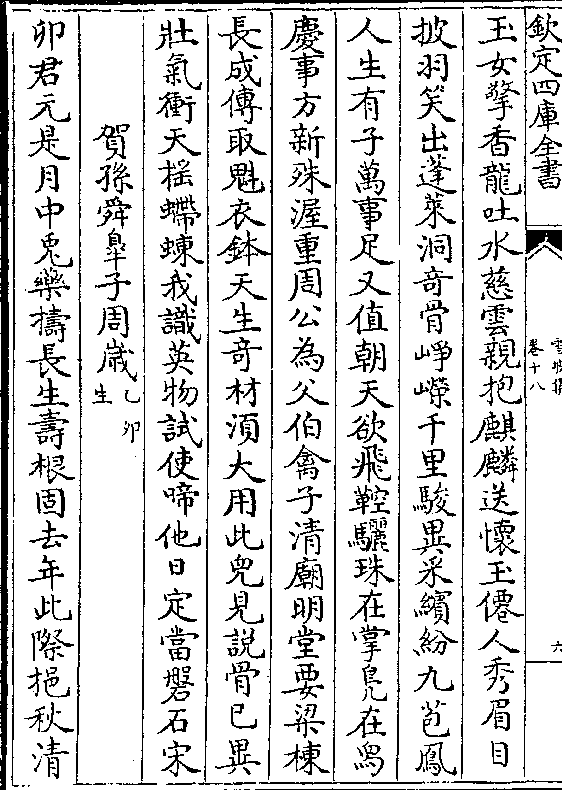 欽定四庫全書
卷十八
六
玉女擎香龍吐水慈雲親抱麒麟送懷玉僊人秀眉目
披羽笑出蓬萊洞竒骨崢嶸千里駿異采繽紛九苞鳳
人生有子萬事足又值朝天欲飛鞚驪珠在掌鳬在舄
慶事方新殊渥重周公為父伯禽子清廟明堂要梁棟
長成傅取魁衣鉢天生竒材湏大用此兒見説骨已異
壯氣衝天揺螮蝀我識英物試使啼他日定當磐石宋
賀孫舜臯子周歲乙卯生
卯君元是月中兎藥擣長生壽根固去年此際挹秋清